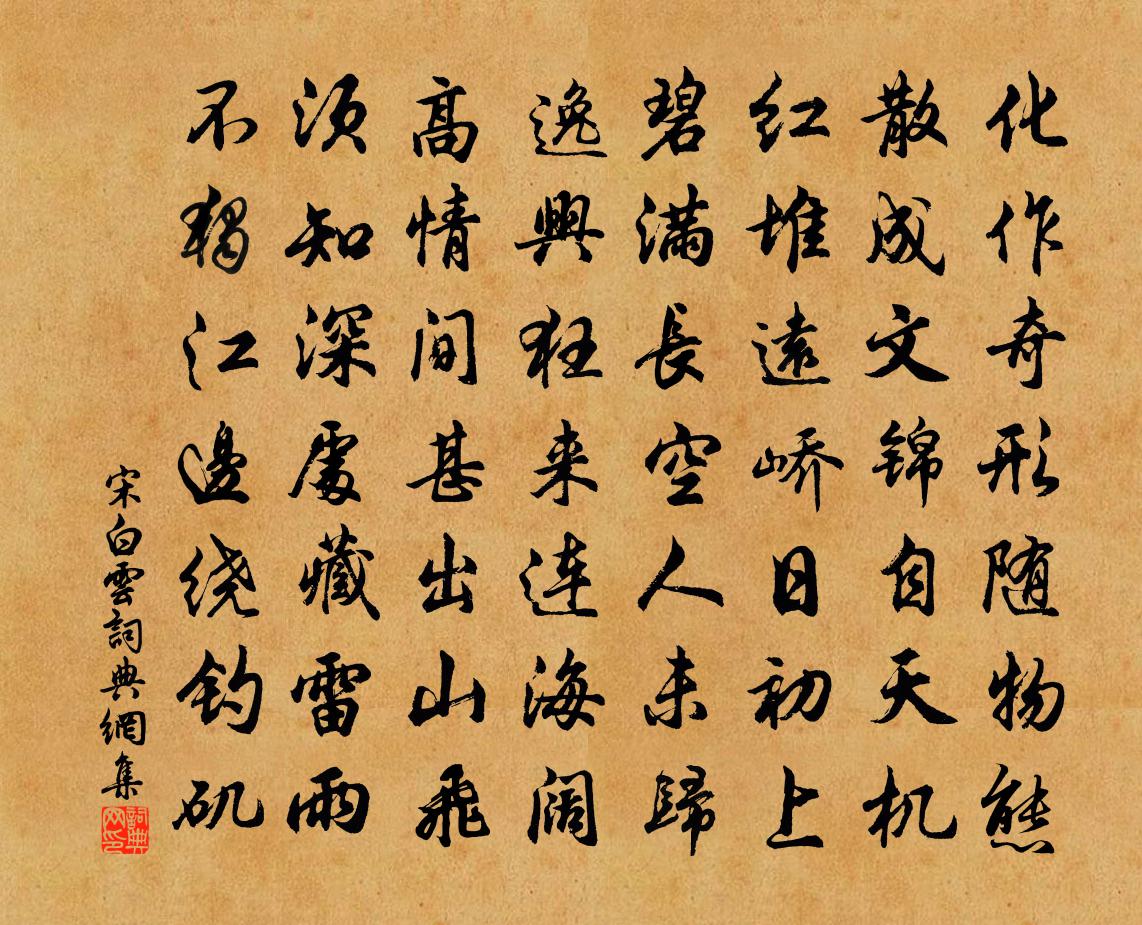 化作奇形随物態
散成文锦自天机
红堆遠峤日初上
碧满長空人未歸
逸興狂来连海阔
高情间甚出山飛
须知深處藏雷雨
不獨江邊绕钓矶
宋白雲詞典網集
詞典网印